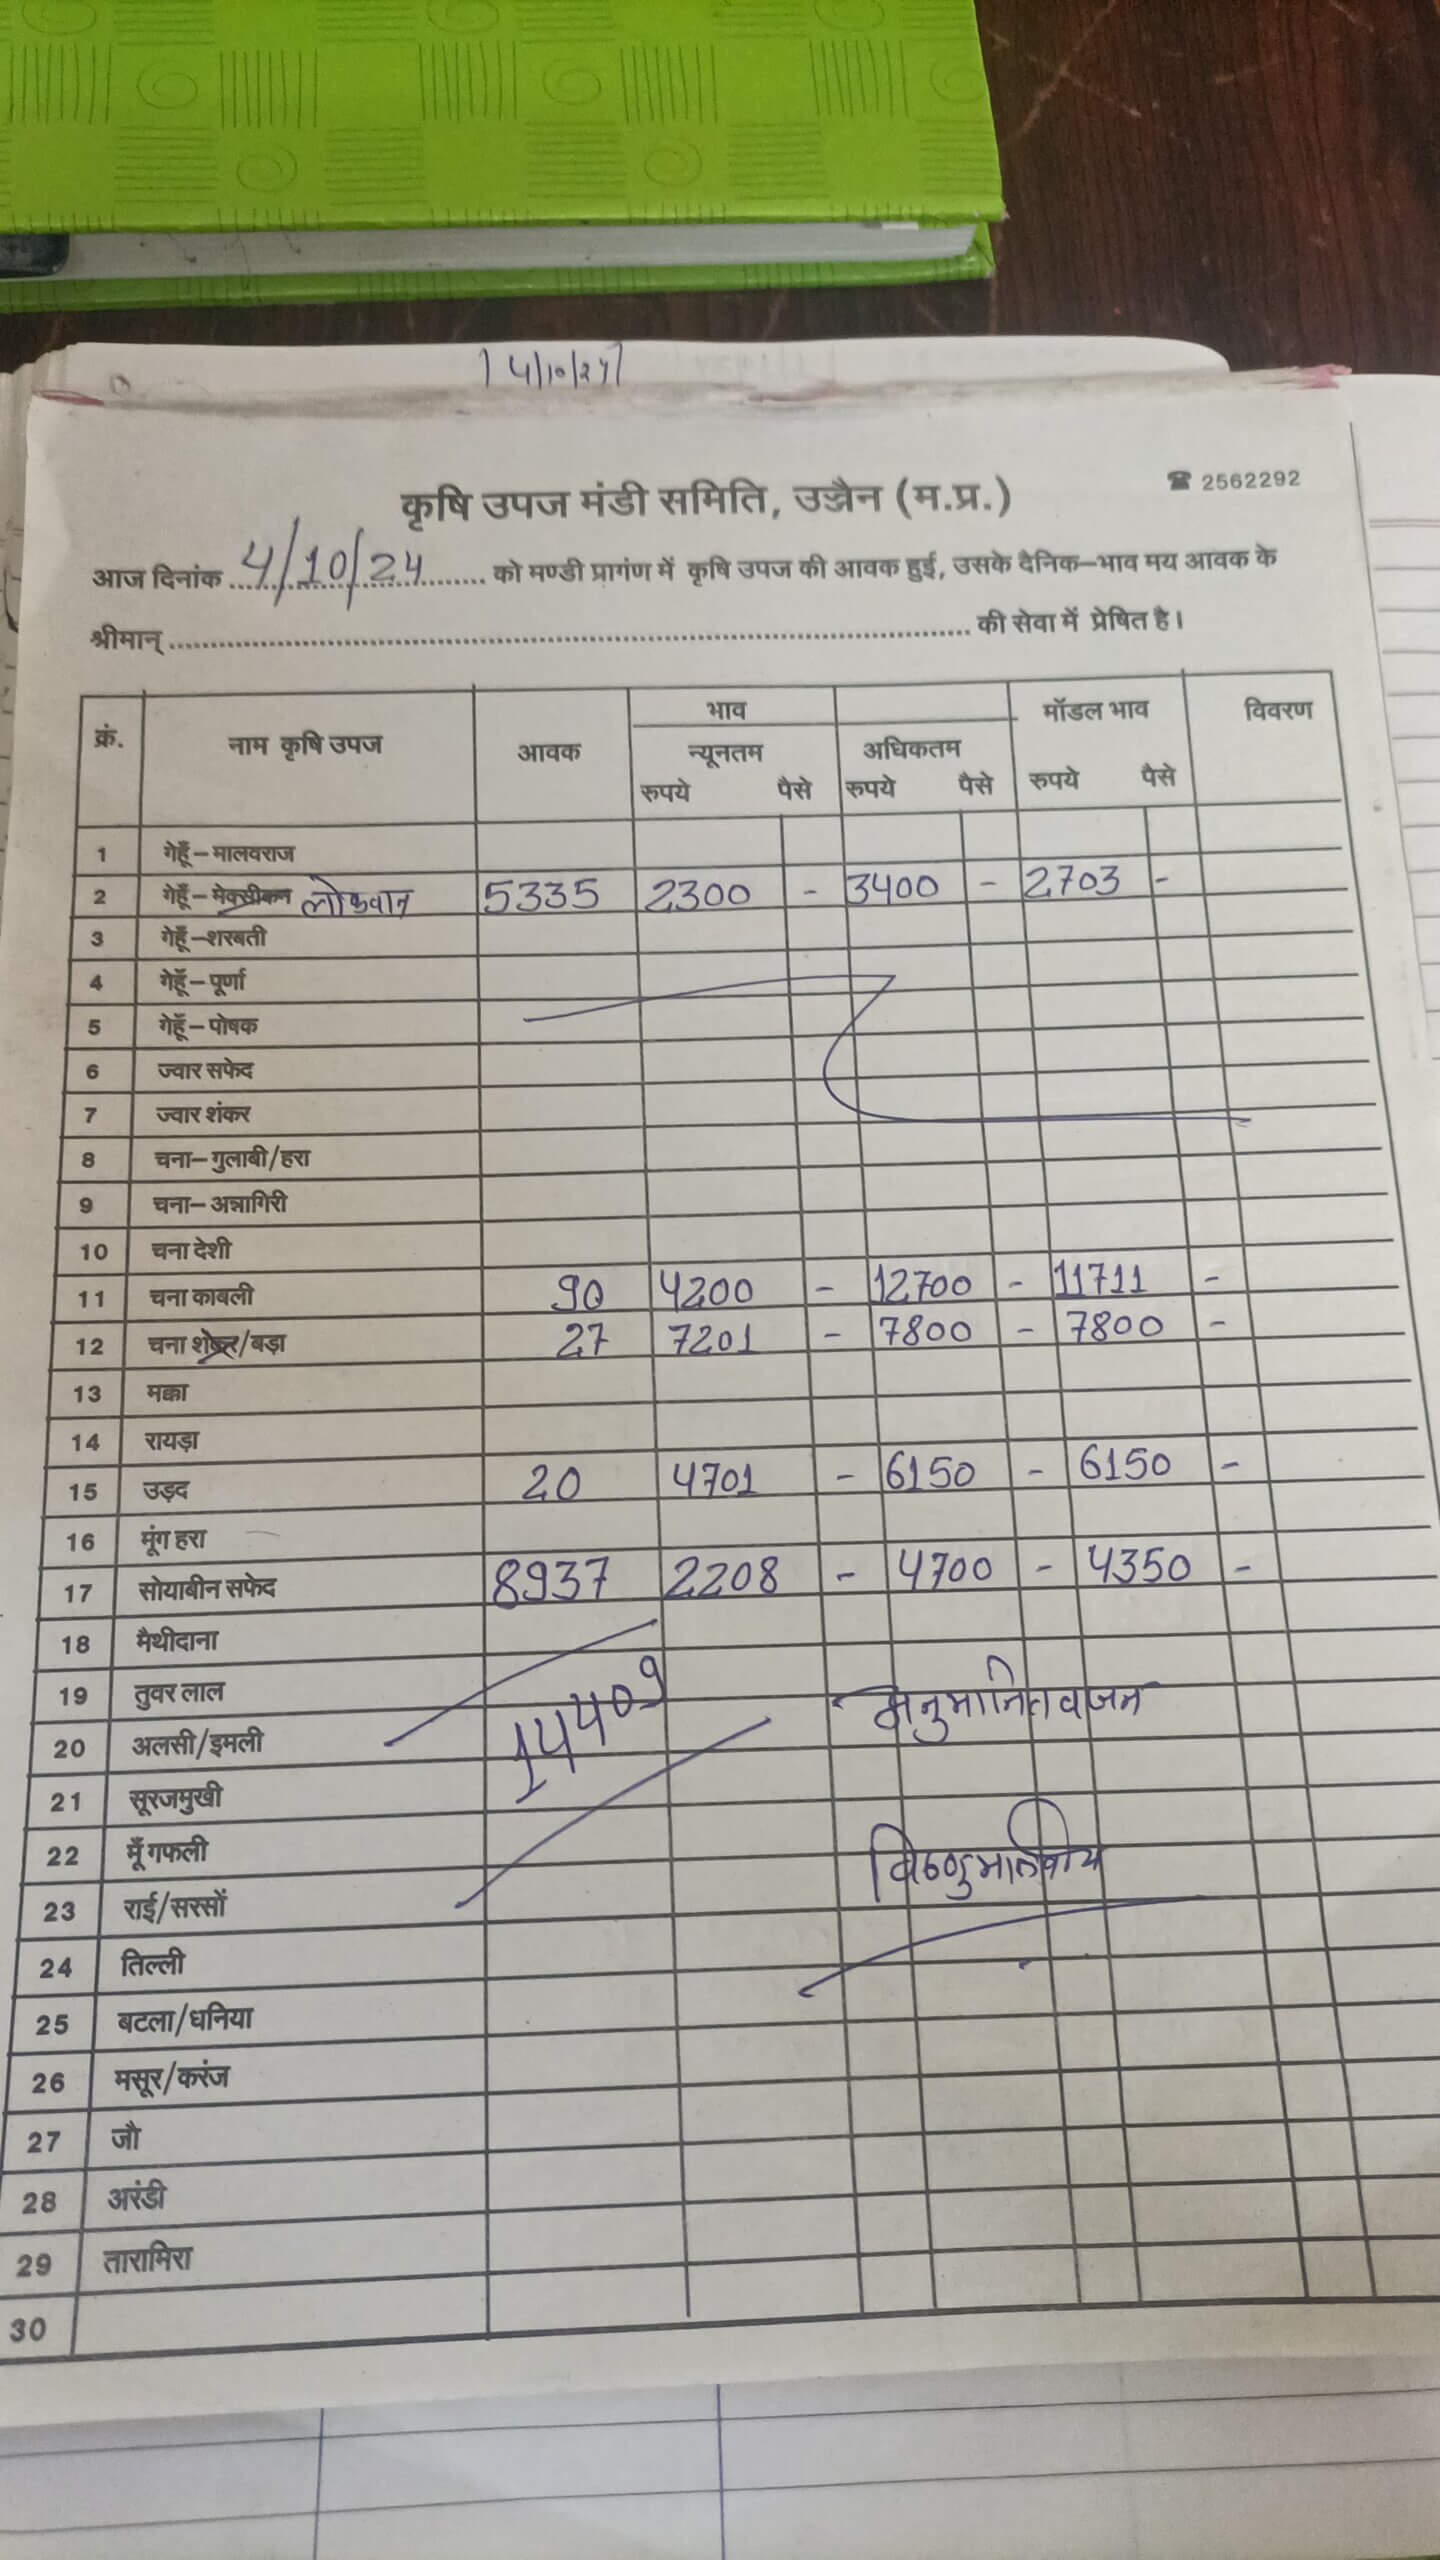 4/10/24
कृषि उपज मंडी समिति, उज्जैन (म.प्र.) ☎ 2562292
आज दिनांक 4/10/24 को मण्डी प्रागंण में कृषि उपज की आवक हुई, उसके दैनिक-भाव मय आवक के
श्रीमान् .......... की सेवा में प्रेषित है।
क्रं. नाम कृषि उपज आवक भाव मॉडल भाव विवरण
न्यूनतम अधिकतम
रुपये पैसे रुपये पैसे रुपये पैसे
1 गेहूँ-मालवराज
2 गेहूँ-मेक्सीकन लोकवान 5335 2300 - 3400 - 2703 -
3 गेहूँ-शरबती
4 गेहूँ-पूर्णा
5 गेहूँ-पोषक
6 ज्वार सफेद
7 ज्वार शंकर
8 चना-गुलाबी/हरा
9 चना-अन्नागिरी
10 चना देशी
11 चना काबली 90 4200 - 12700 - 11711 -
12 चना शंकर/बड़ा 27 7201 - 7800 - 7800 -
13 मक्का
14 रायड़ा
15 उड़द 20 4701 - 6150 - 6150 -
16 मूंग हरा
17 सोयाबीन सफेद 8937 2208 - 4700 - 4350 -
18 मैथीदाना
19 तुवर लाल
14409 अनुमानित वजन
20 अलसी/इमली
21 सूरजमुखी
22 मूँगफली
विष्णु मालवीय
23 राई/सरसों
24 तिल्ली
25 बटला/धनिया
26 मसूर/करंज
27 जौ
28 अरंडी
29 तारामिरा
30